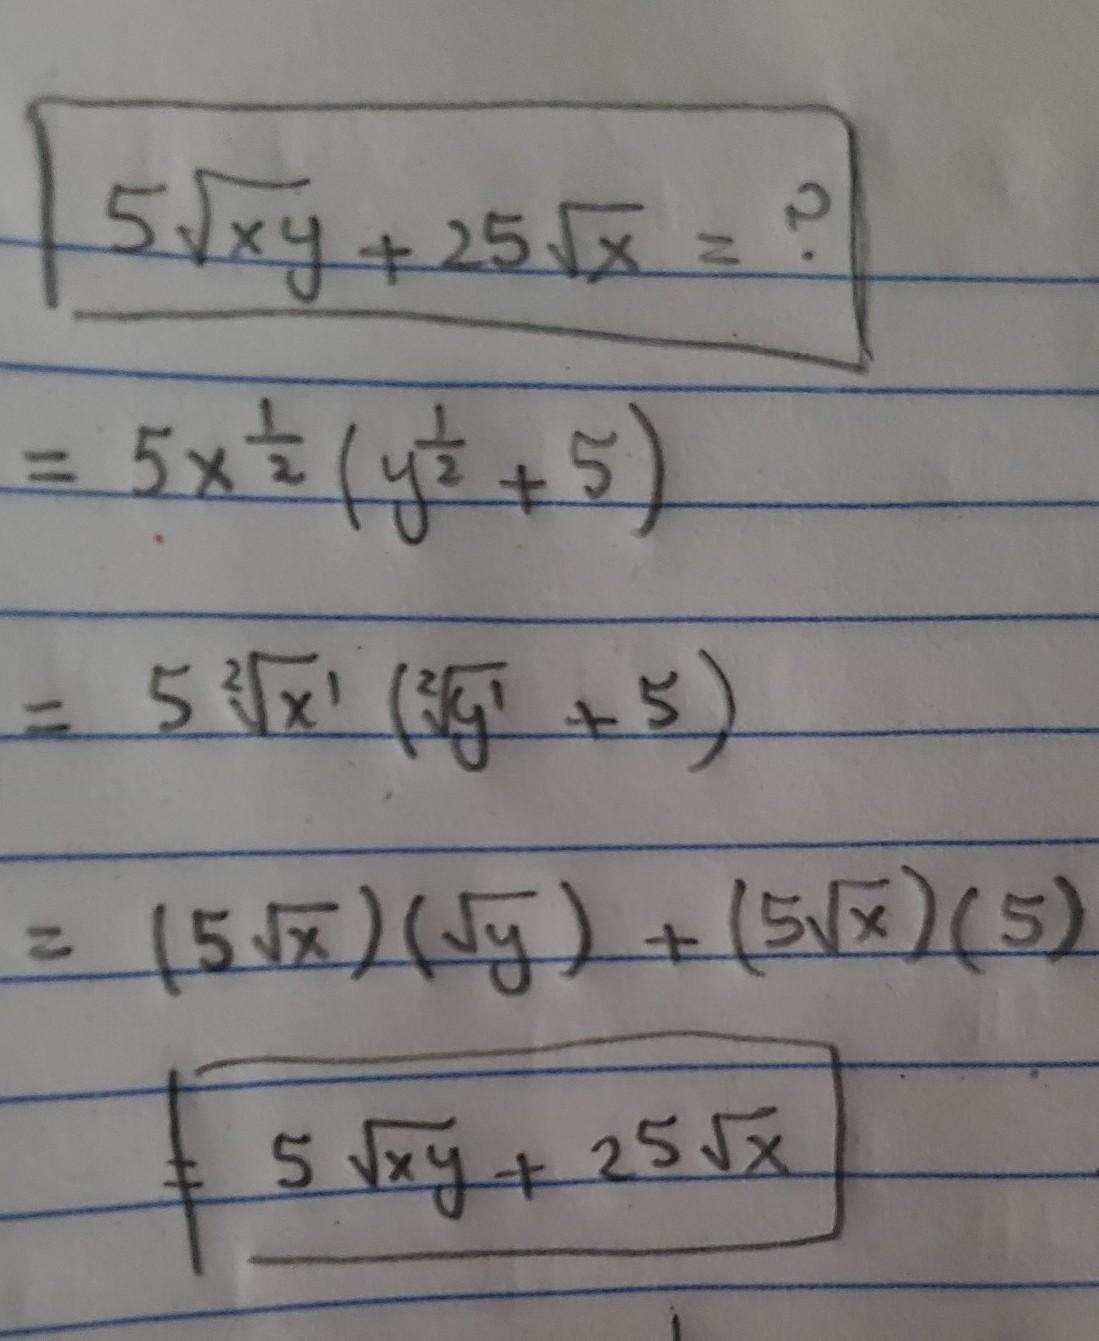 5√xy + 25√x = ?
= 5x^(1/2) (y^(1/2) + 5)
= 5 ²√x¹ (²√y¹ + 5)
= (5√x)(√y) + (5√x)(5)
= 5√xy + 25√x